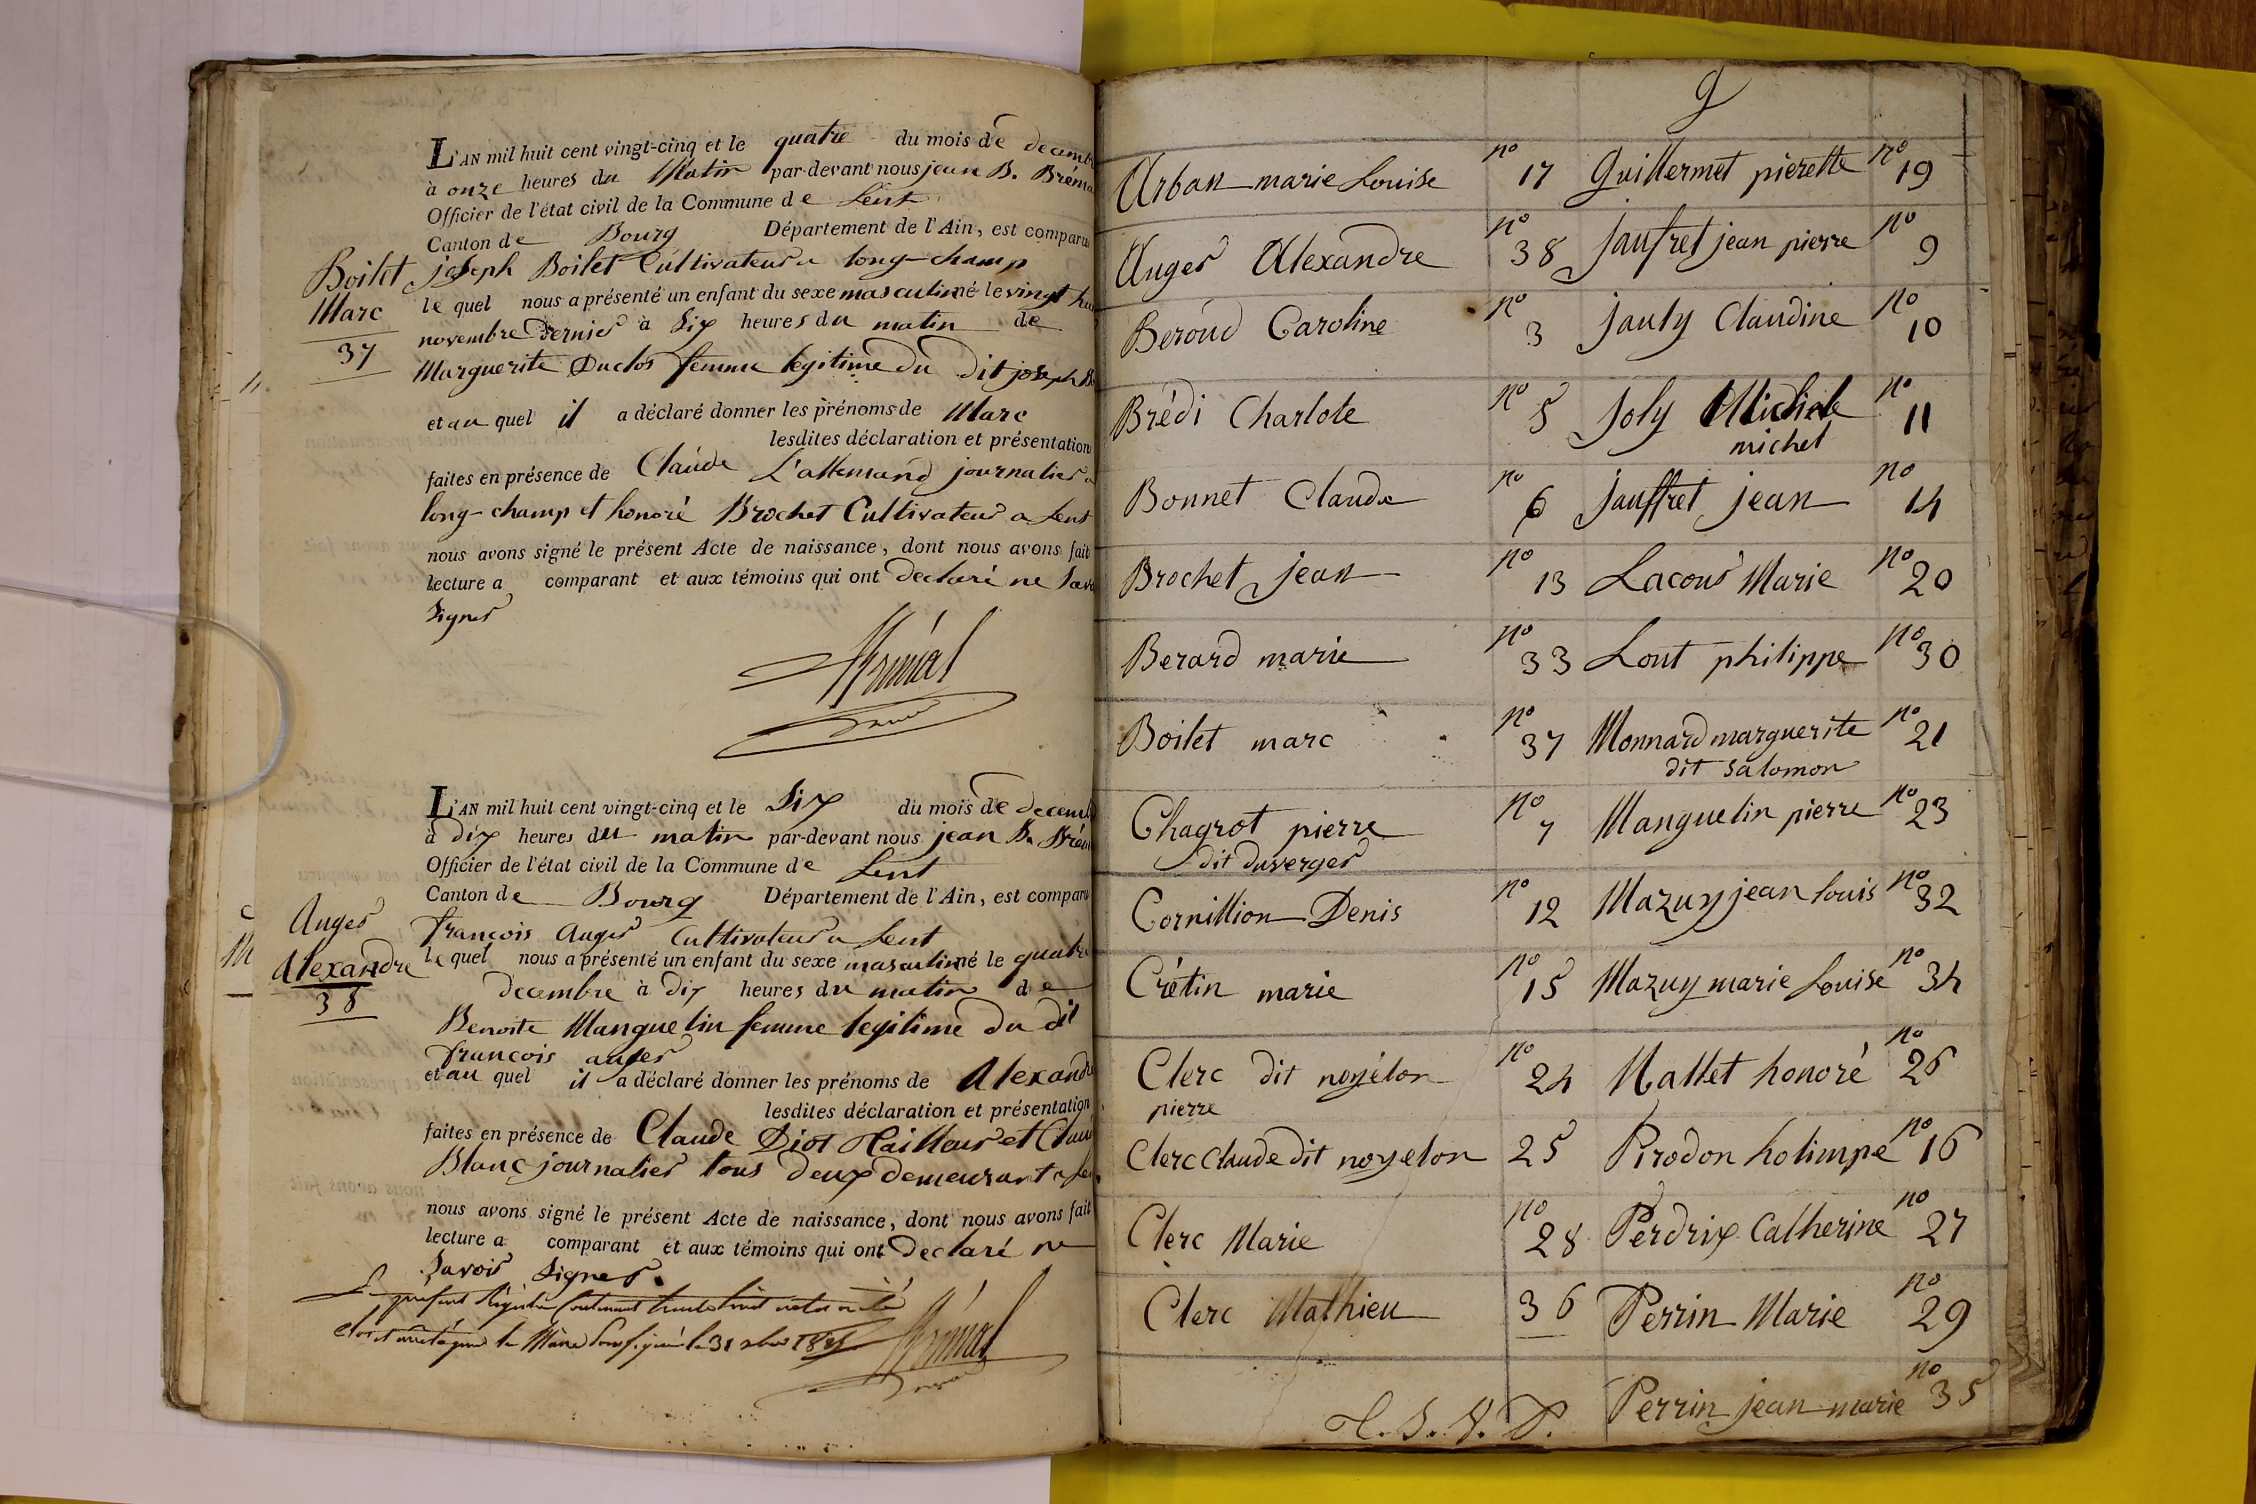 L'AN mil huit cent vingt-cinq et le quatre du mois de decemb
à onze heures du Matin par-devant nous jean B. Bréma
Officier de l'état civil de la Commune de Lent
Canton de Bourg Département de l'Ain, est comparu
Boilet
Marc
37
joseph Boilet Cultivateur a long-champ
le quel nous a présenté un enfant du sexe masculin né le vingt hui
novembre dernier à Six heures du matin de
Marguerite Duclos femme legitime du dit joseph B
et au quel il a déclaré donner les prénoms de Marc
lesdites déclaration et présentation
faites en présence de Claude L'allemand journalier a
long-champ et honoré Brochet Cultivateur a Lent
nous avons signé le présent Acte de naissance, dont nous avons fait
lecture a comparant et aux témoins qui ont declaré ne Savo
Signer
L'AN mil huit cent vingt-cinq et le Six du mois de decemb
à dix heures du matin par-devant nous jean B. Brém
Officier de l'état civil de la Commune de Lent
Canton de Bourg Département de l'Ain, est comparu
Auger
Alexandre
38
françois Auger Cultivateur a Lent
le quel nous a présenté un enfant du sexe masculin né le quatre
decembre à dix heures du matin de
Benoite Manguelin femme legitime du dit
françois auger
et au quel il a déclaré donner les prénoms de Alexandre
lesdites déclaration et présentation
faites en présence de Claude Diot Tailleur et Clau
Blanc journalier tous deux demeurant a Le
nous avons signé le présent Acte de naissance, dont nous avons fait
lecture a comparant et aux témoins qui ont declaré ne
Savoir Signer.
Le présent Régistre contenant trente huit actes a été
clos et arrêté par le Maire soussigné le 31 xbre 1825
g
Urban marie Louise no 17
Auger Alexandre no 38
Beroud Caroline no 3
Brédi Charlote no 5
Bonnet Claude no 6
Brochet jean no 13
Berard marie no 33
Boilet marc no 37
Chagrot pierre no 7
dit duverger
Cornillion Denis no 12
Crétin marie no 15
Clerc dit noyélon no 24
pierre
Clerc Claude dit noyelon 25
Clerc Marie no 28
Clerc Mathieu 36
T. S. V. P.
Guillermet pierette no 19
jaufret jean pierre no 9
jauly Claudine no 10
joly Michele no 11
michel
jauffret jean no 14
Lacour Marie no 20
Lont philippe no 30
Monnard marguerite no 21
dit salomon
Manguelin pierre no 23
Mazuy jean louis no 32
Mazuy marie Louise no 34
Mallet honoré no 26
Pirodon holimpe no 16
Perdrix Catherine no 27
Perrin Marie no 29
Perrin jean marie no 35